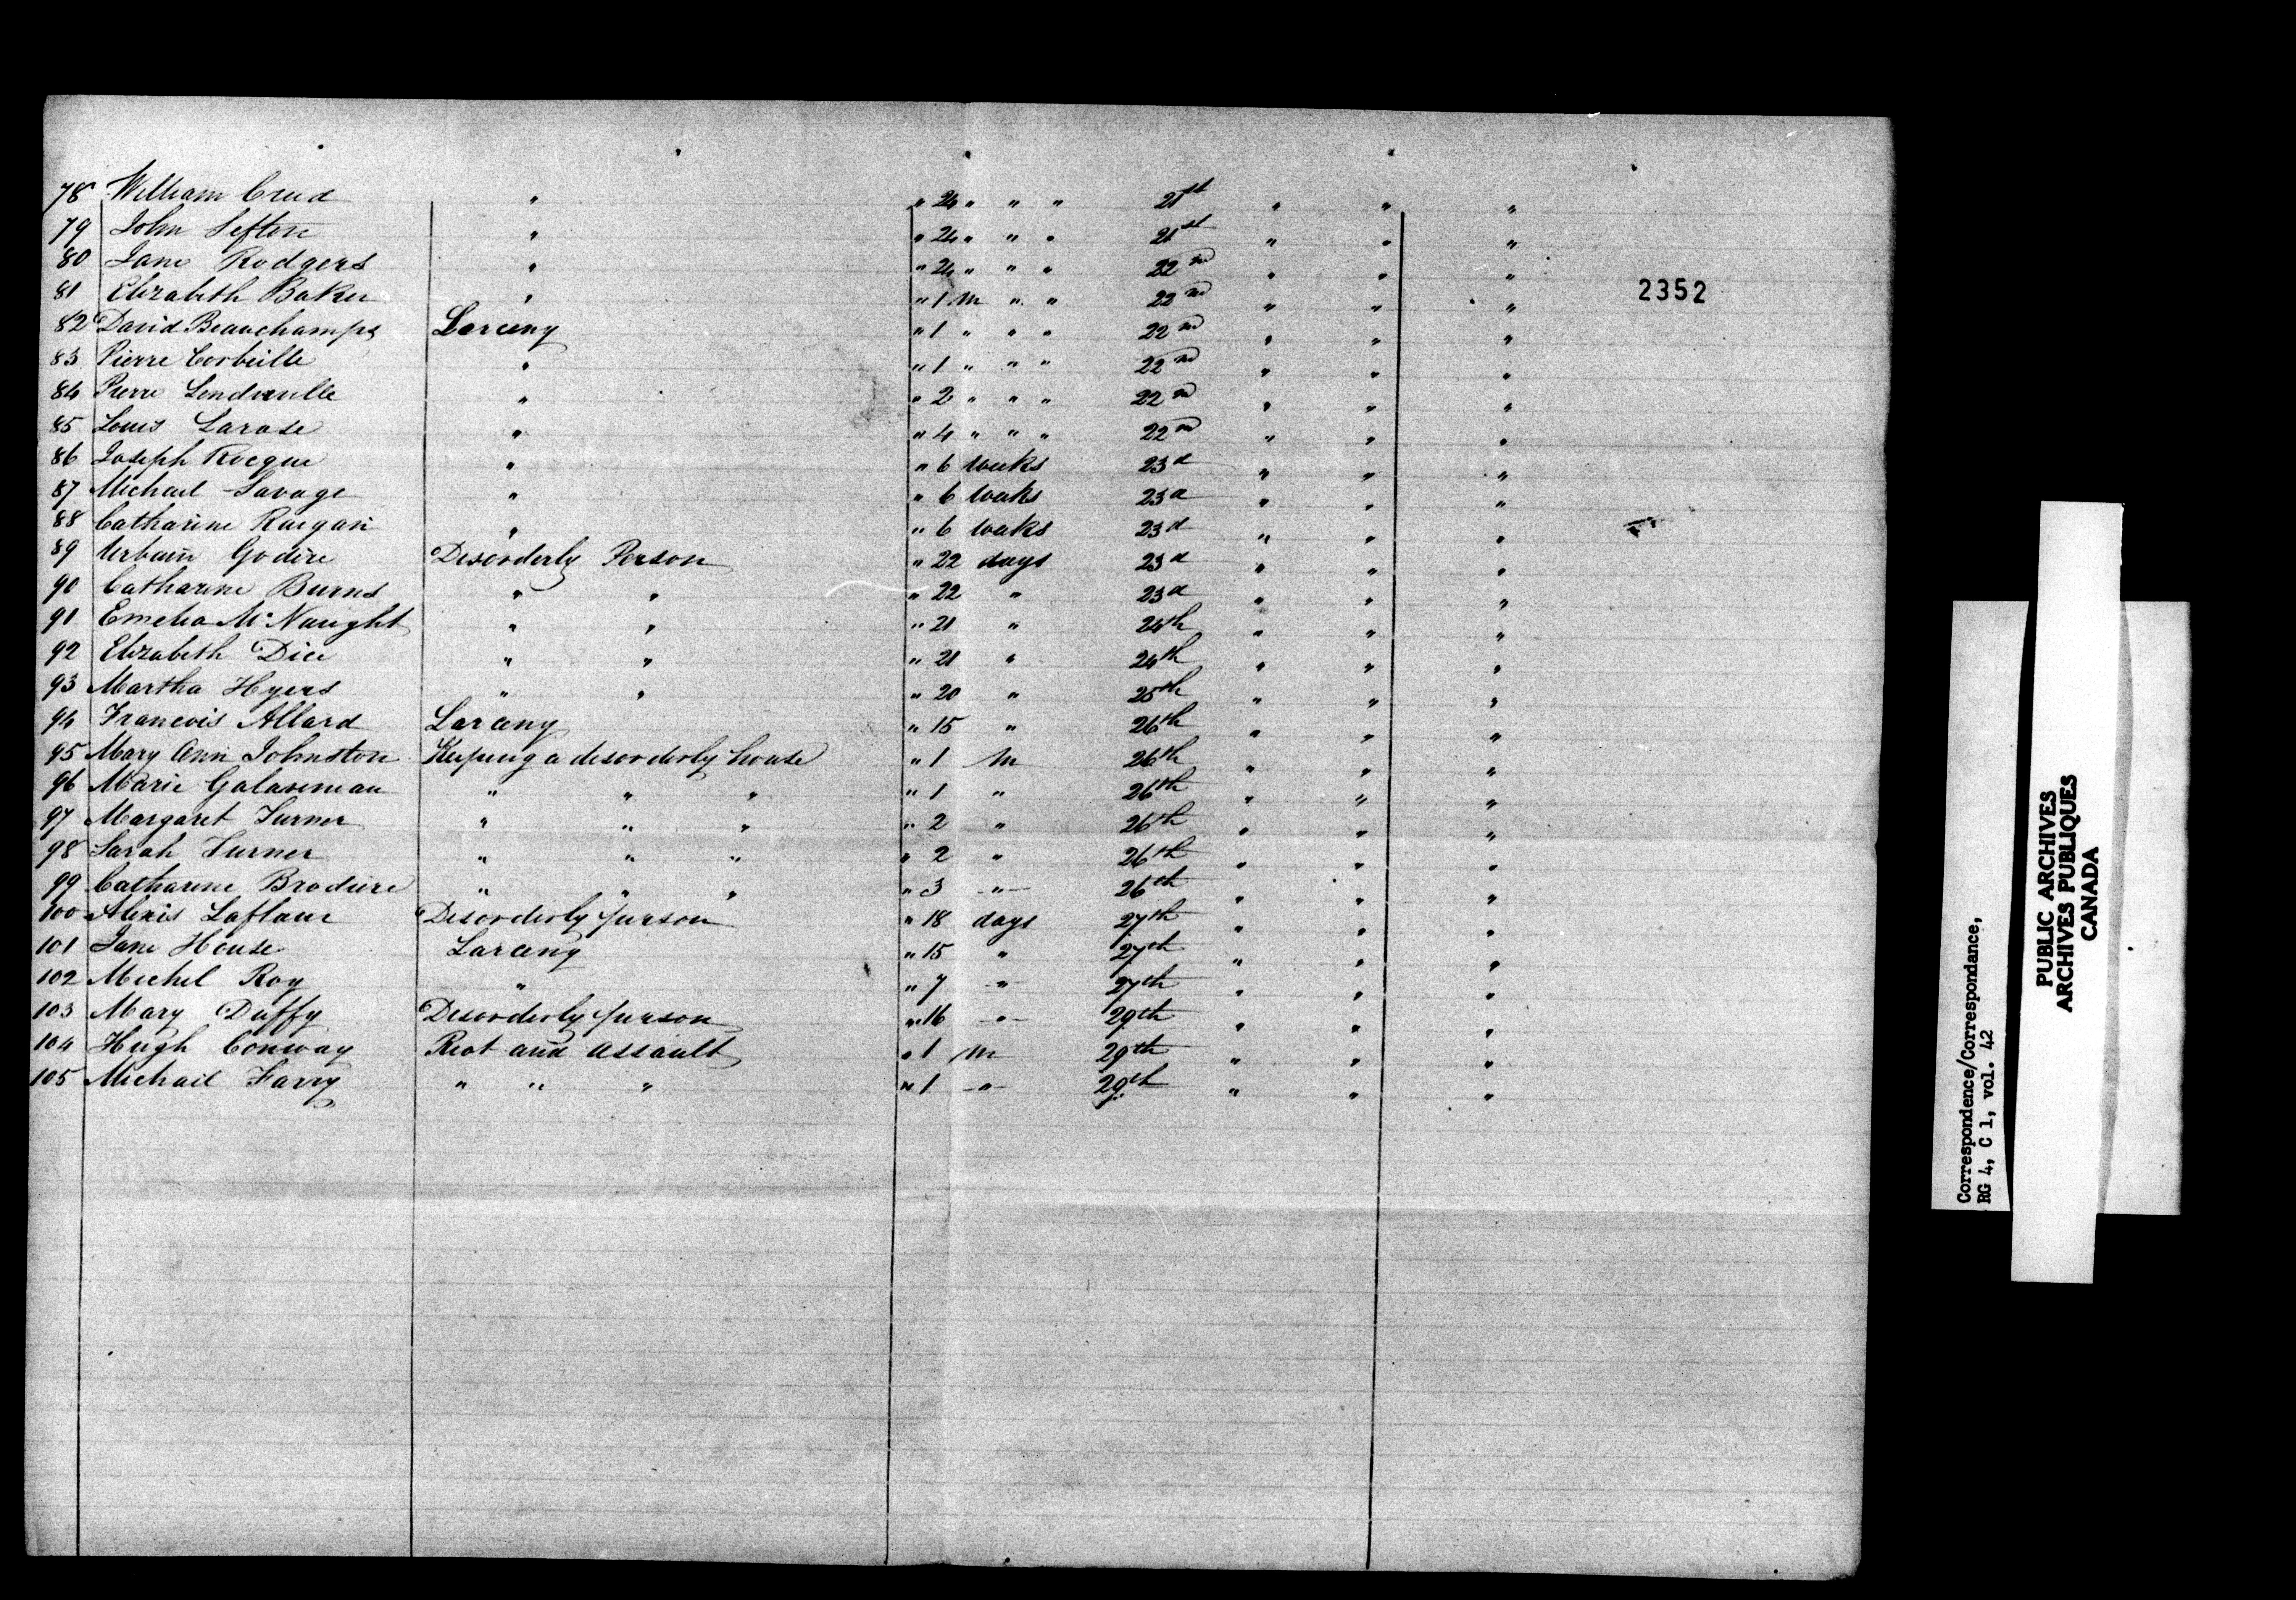 78 William Creed " " 24 " " " 21st " " "
79 John Sefton " " 24 " " " 21st " " "
80 Jane Rodgers " " 24 " " " 22nd " " "
81 Elizabeth Baker " " 1 M " " 22nd " " "
82 David Beauchamps Larceny " 1 " " " 22nd " " "
83 Pierre Corbeille " " 1 " " " 22nd " " "
84 Pierre " " 2 " " " 22nd " " "
85 Louis Larose " " 4 " " " 22nd " " "
86 Joseph Rocque " " 6 weeks 23d " " "
87 Michael Savage " " 6 weeks 23d " " "
88 Catharine Reegan " " 6 weeks 23d " " "
89 Urbain Godire Disorderly Person " 22 days 23d " " "
90 Catharine Burns " " " 22 " 23d " " "
91 Emelia McNaught " " " 21 " 24th " " "
92 Elizabeth Dice " " " 21 " 24th " " "
93 Martha Hyers " " " 20 " 25th " " "
94 Francois Allard Larceny " 15 " 26th " " "
95 Mary Ann Johnston Keeping a disorderly house " 1 M 26th " " "
96 Marie Galaseneau " " " " 1 " 26th " " "
97 Margaret Turner " " " " 2 " 26th " " "
98 Sarah Turner " " " " 2 " 26th " " "
99 Catharine Brodiere " " " " 3 " 26th " " "
100 Alexis Laflam Disorderly person " 18 days 27th " " "
101 Jane House Larceny " 15 " 27th " " "
102 Michel Roy " " 7 " 27th " " "
103 Mary Duffy Disorderly person " 16 " 29th " " "
104 Hugh Conway Riot and assault " 1 M 29th " " "
105 Michael Farry " " " " 1 " 29th " " "
2352
Correspondence/Correspondance,
RG 4, C 1, vol. 42
PUBLIC ARCHIVES
ARCHIVES PUBLIQUES
CANADA